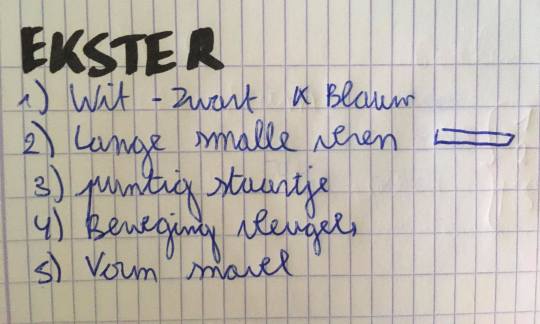 EKSTER
1) Wit - Zwart & Blauw
2) Lange smalle veren
3) puntig staartje
4) Beweging vleugels
5) Vorm snavel